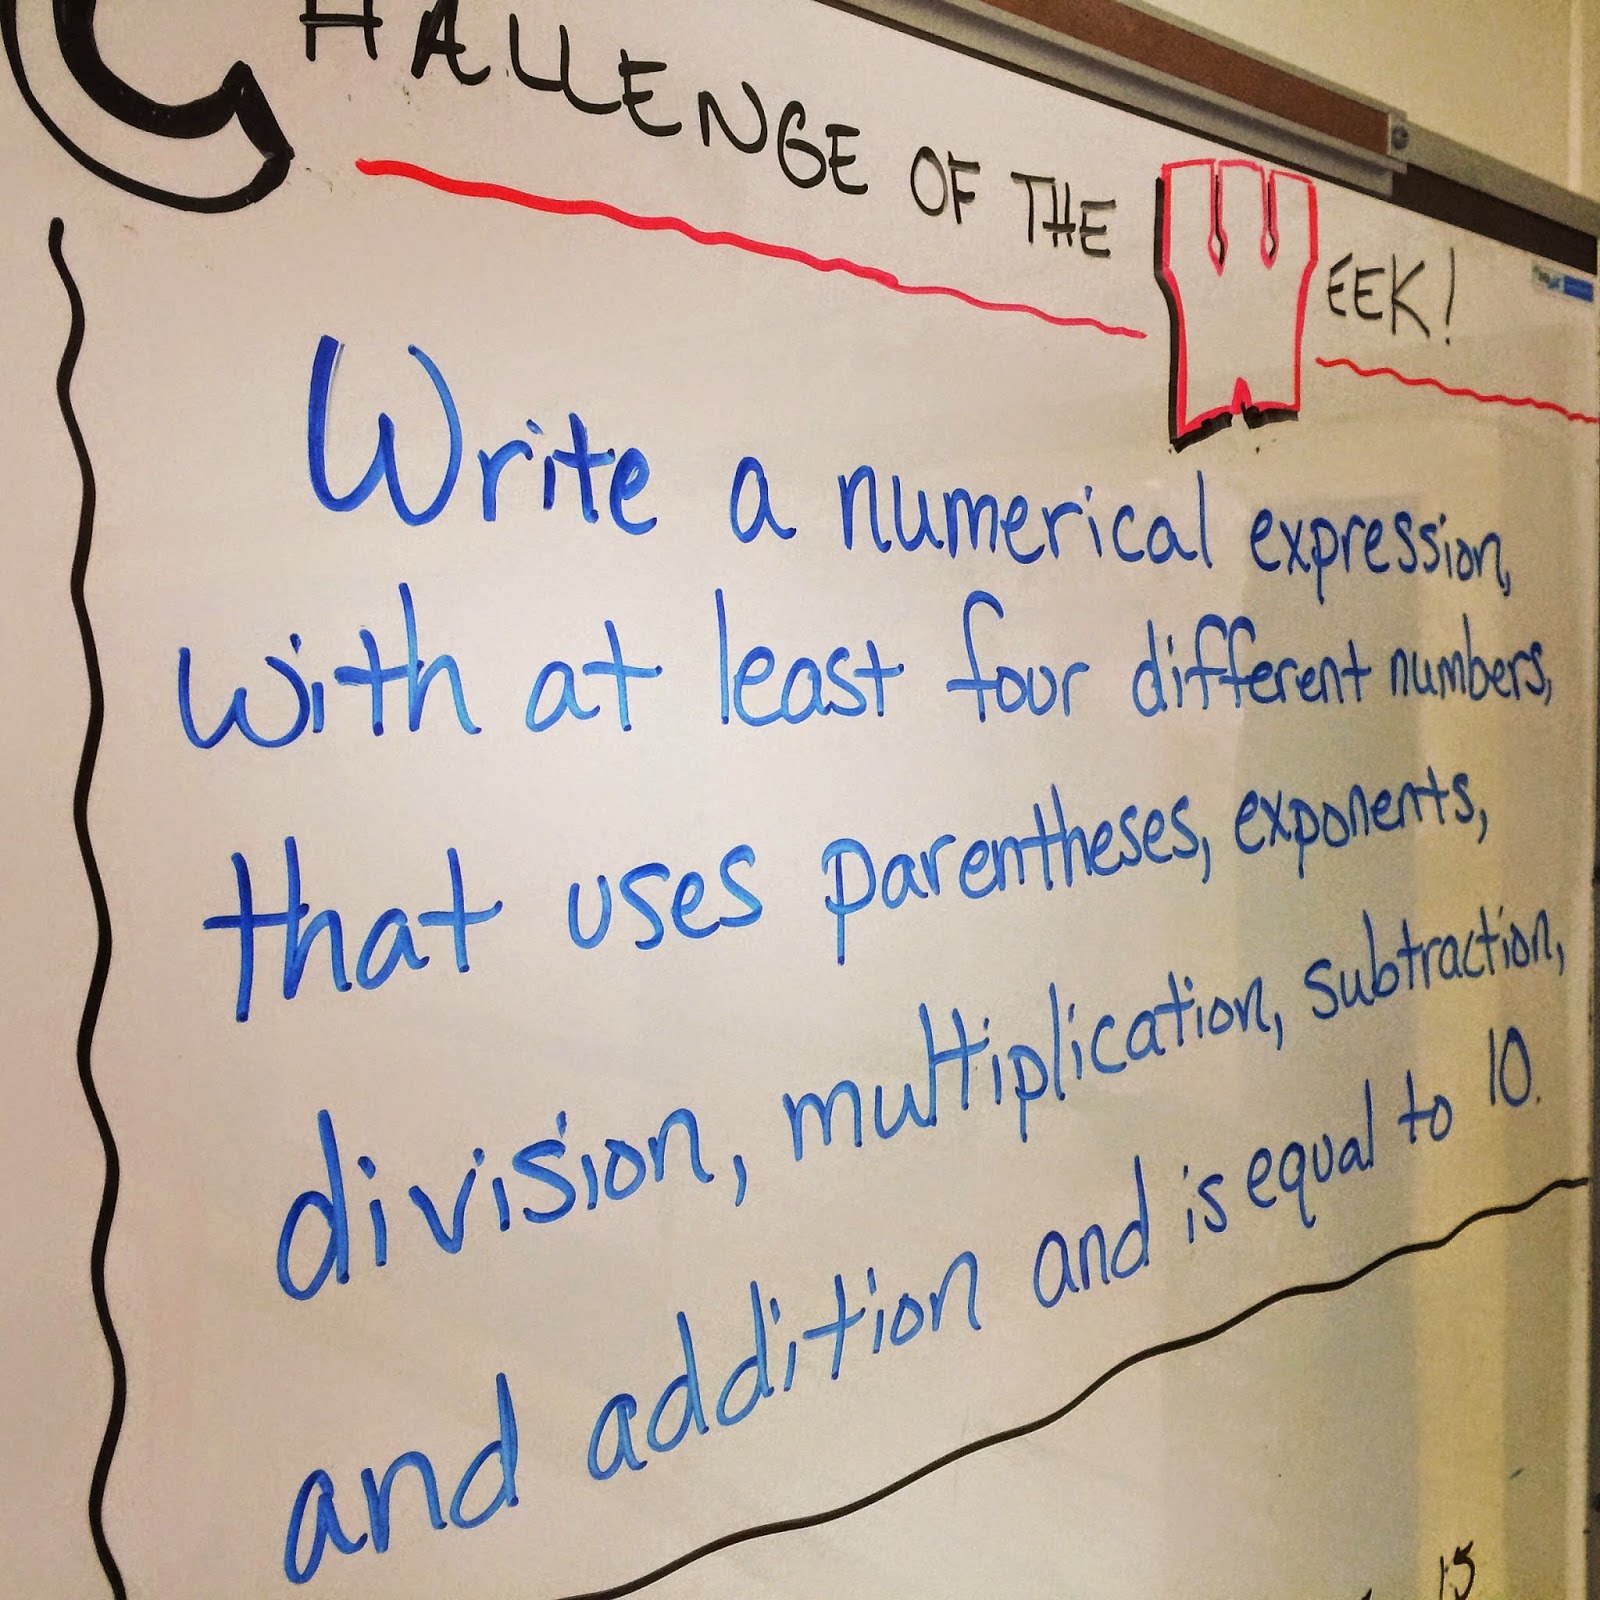 CHALLENGE OF THE WEEK!
Write a numerical expression,
with at least four different numbers,
that uses parentheses, exponents,
division, multiplication, subtraction,
and addition and is equal to 10.
15